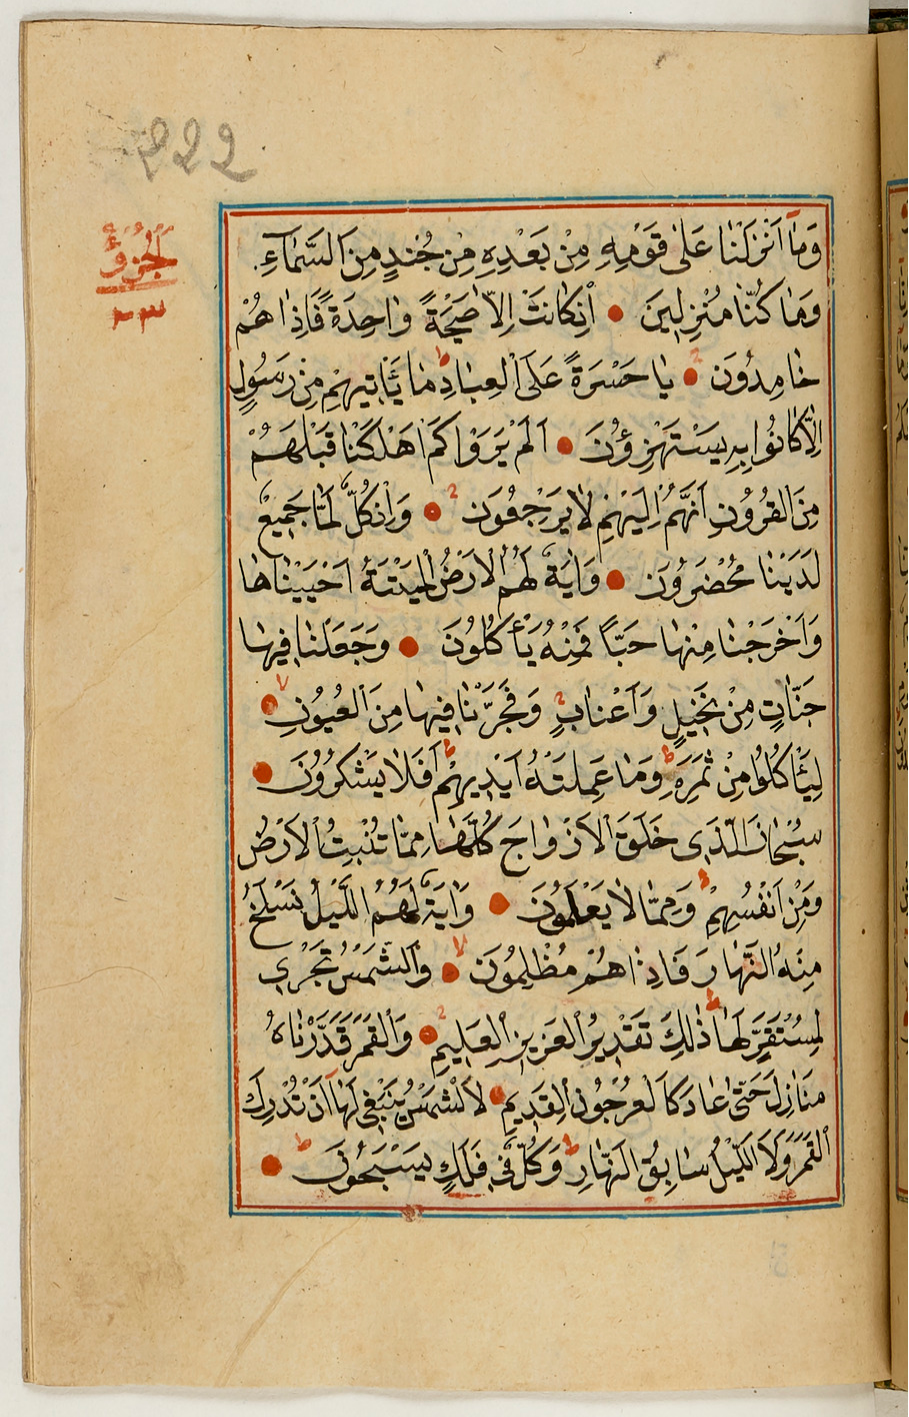 ٩٢٢
الجزؤ
٢٣
وَمٰا اَنْزَلْنٰا عَلٰى قَوْمِهِ مِنْ بَعْدِهِ مِنْ جُنْدٍ مِنَ السَّمٰاءِ
وَمٰا كُنّٰا مُنْزِلِينَ اِنْ كٰانَتْ اِلاّٰ صَيْحَةً وٰاحِدَةً فَاِذٰا هُمْ
خٰامِدُونَ يٰا حَسْرَةً عَلَى الْعِبٰادِ مٰا يَأْتِيهِمْ مِنْ رَسُولٍ
اِلاّٰ كٰانُوا بِهِ يَسْتَهْزِؤُنَ اَلَمْ يَرَوْا كَمْ اَهْلَكْنٰا قَبْلَهُمْ
مِنَ الْقُرُونِ اَنَّهُمْ اِلَيْهِمْ لاٰ يَرْجِعُونَ وَاِنْ كُلٌّ لَمّٰا جَمِيعٌ
لَدَيْنٰا مُحْضَرُونَ وَاٰيَةٌ لَهُمُ الْاَرْضُ الْمَيْتَةُ اَحْيَيْنٰاهٰا
وَاَخْرَجْنٰا مِنْهٰا حَبًّا فَمِنْهُ يَأْكُلُونَ وَجَعَلْنٰا فِيهٰا
جَنّٰاتٍ مِنْ نَخِيلٍ وَاَعْنٰابٍ وَفَجَّرْنٰا فِيهٰا مِنَ الْعُيُونِ
لِيَأْكُلُوا مِنْ ثَمَرِهِ وَمٰا عَمِلَتْهُ اَيْدِيهِمْ اَفَلاٰ يَشْكُرُونَ
سُبْحٰانَ الَّذِى خَلَقَ الْاَزْوٰاجَ كُلَّهٰا مِمّٰا تُنْبِتُ الْاَرْضُ
وَمِنْ اَنْفُسِهِمْ وَمِمّٰا لاٰ يَعْلَمُونَ وَاٰيَةٌ لَهُمُ اللَّيْلُ نَسْلَخُ
مِنْهُ النَّهٰارَ فَاِذٰا هُمْ مُظْلِمُونَ وَالشَّمْسُ تَجْرِى
لِمُسْتَقَرٍّ لَهٰا ذٰلِكَ تَقْدِيرُ الْعَزِيزِ الْعَلِيمِ وَالْقَمَرَ قَدَّرْنٰاهُ
مَنٰازِلَ حَتّٰى عٰادَ كَالْعُرْجُونِ الْقَدِيمِ لاَ الشَّمْسُ يَنْبَغِى لَهٰا اَنْ تُدْرِكَ
الْقَمَرَ وَلاَ اللَّيْلُ سٰابِقُ النَّهٰارِ وَكُلٌّ فِى فَلَكٍ يَسْبَحُونَ